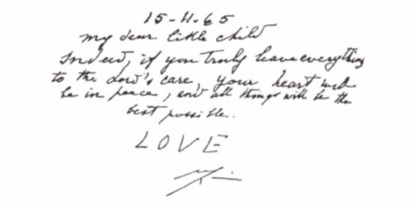 15-4-65
my dear little child
Indeed, if you truly leave everything
to the Lord's care, your heart will
be in peace, and all things will be the
best possible.
LOVE